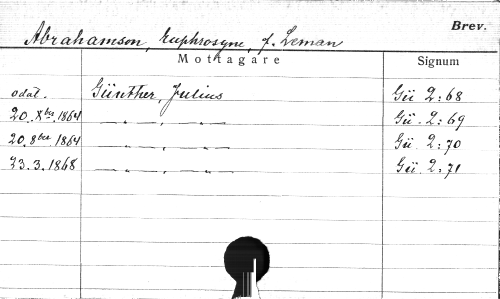 Brev.
Abrahamson, Euphrosyne, f. Leman
Mottagare Signum
odat. Günther, Julius Gü 2:68
20. Xbre 1864 — „ — , — „ — Gü. 2:69
20. 8bre 1864 — „ — , — „ — Gü 2:70
23.3.1868 — „ — , — „ — Gü. 2:71